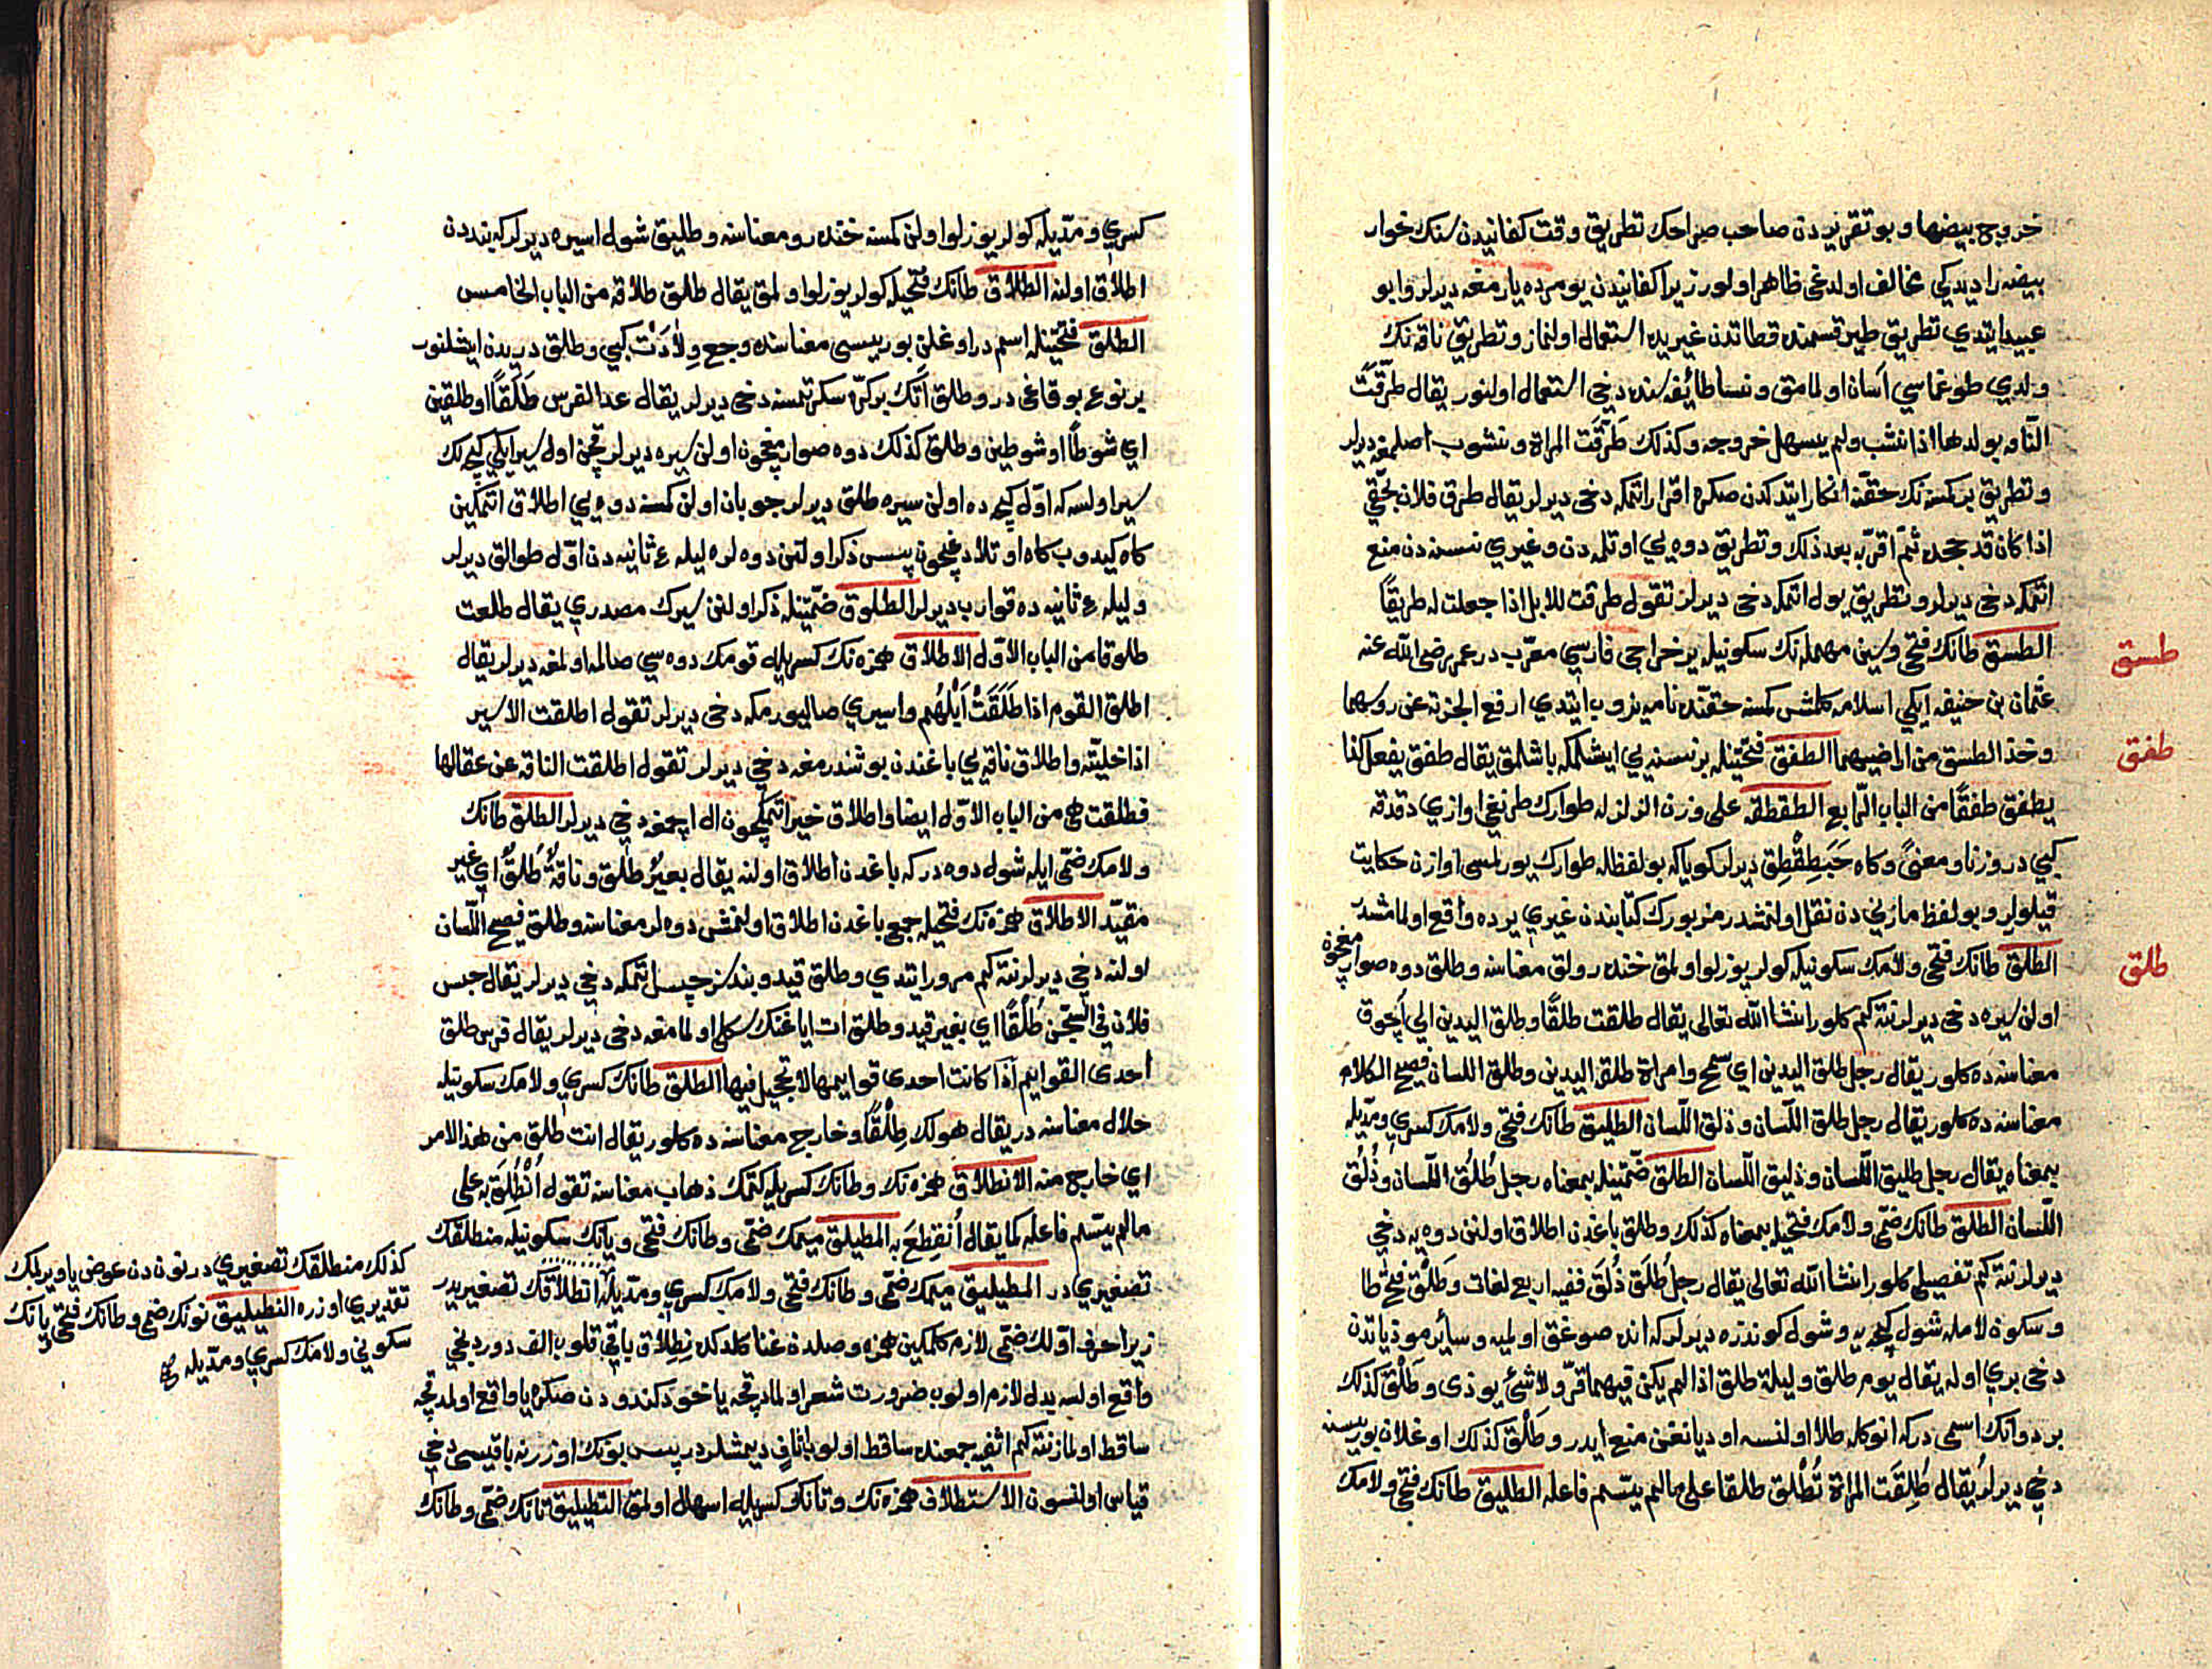 خروج بيضها و بو تقريردن صاحب صراحك تطريق وقت كفانيدن سنك خوار
بيضه را ديدكي مخالف اولدغى ظاهر اولور زيرا كفانيدن يومرده يارمغه ديرلر و ابو
عبيد ايتدي تطريق طير قسمنده قطاتدن غيريده استعمال اولنماز و تطريق ناقه نك
ولدي طوغماسي آسان اولمامق و نسا طائفه سنده دخى استعمال اولنور يقال طرّقت
الناقه بولدها اذا نشب ولم يسهل خروجه و كذلك طَرَّقَت المراة و نشوب اصلمغه ديرلر
و تطريق بر كمسنه نك حقّنه انكار ايتدكدن صكره اقرار اتمكه دخى ديرلر يقال طرق فلان بحقّي
اذا كان قد جحده ثمّ اقرّ به بعد ذلك و تطريق دوه يي اوتلمه دن و غيري نسنه دن منع
اتمكه دخى ديرلر و تطريق يول اتمكه دخى ديرلر تقول طرقت للابل اذا جعلت له طريقًا
طسق
الطسق طانك فتحى و سين مهمله نك سكونيله ير خراجى فارسي معرّب در عمر رضى الله عنه
عثمان بن حنيفه ايكي اسلامه كلمش كمسنه حقنده نامه يزوب ايتدي ارفع الجزية عن روسهما
طفق
و خذ الطسق من ارضيهما الطفق فتحتينله بر نسنه يي ايشلمكه باشلمق يقال طفق يفعل كذا
يطفق طفقًا من الباب الرّابع الطقطقه على وزن الزلزله طوارك طرنغى اوازي دقدقه
كبي در وزنا و معنىً و كاه حَبَطِقْطِق ديرلر كويا كه بو لفظله طوارك يورلمسى اوازن حكايت
قيلولر و بو لفظ مازنى دن نقل اولنمشدر مزبورك كتابندن غيري يرده واقع اولمامشدر
طلق
الطلق طانك فتحى و لامك سكونيله كولر يوزلو اولمق خنده رولق معناسنه و طلق دوه صوار
مغچون
اولن سيره دخى ديرلر نته كم كلور انشا الله تعالى يقال طلقت طلقًا و طلق اليدين الي آچوق
معناسنه ده كلور يقال رجل طلق اليدين اي سمح و امراة طلقة اليدين و طلق اللسان فصيح الكلام
معناسنه ده كلور يقال رجل طلق اللّسان و ذلق اللّسان الطليق طانك فتحى و لامك كسري و مدّيله
بمعناه يقال رجل طليق اللّسان و ذليق اللّسان الطلق ضمّتينله بمعناه رجل طُلُق اللّسان و ذُلُق
اللّسان الطلق طانك ضمّى و لامك فتحيله بمعناه كذلك و طلق باغدن اطلاق اولنن دوه يه دخى
ديرلر نته كم تفصيلى كلور انشا الله تعالى يقال رجل طُلَق ذُلَق ففيه اربع لغات و طَلْق فتح طا
و سكون لامله شول كيجه يه و شول كوندزه ديرلر كه انده صوغق اولميه و سائر موذياتدن
دخى بري اوله يقال يوم طلق و ليلة طلق اذا لم يكن فيهما قرّ ولا شئ يوذى و طَلْق كذلك
بر دوانك اسمى در كه انوكله طلا اولنسه اود يانغن منع ايدر و طَلْق كذلك اوغلان بوريسنه
دخى ديرلر يقال طُلِقَت المراة تُطْلق طلقا على مالم يسّم فاعله الطليق طانك فتحى و لامك
كسري و مدّيله كولر يوزلو اولن كمسنه خنده رو معناسنه و طليق شول اسيره ديرلر كه بندن
اطلاق اولنه الطلاق طانك فتحيله كولر يوزلو اولمق يقال طلق طلاقه من الباب الخامس
الطلق فتحتينله اسم در اوغلن بوريسى معناسنده وجع وِلَادَتْ كبي و طلق دريدن ايشلنور
بر نوع بوقاغى در و طلق آتك بر كرّه سكرتمسنه دخى ديرلر يقال عدا الفرس طَلَقًا او طلقين
اي شوطًا او شوطين و طلق كذلك دوه صوارمغچون اولن سيره ديرلر قچن اول سير ايكي كيجه لك
سير اولسه كه اوّل كيجه ده اولن سيره طلق ديرلر چوبان اولن كمسنه دوه يي اطلاق اتمكين
كاه كيدوب كاه اوتلادغيچون پس ذكر اولنن دوه لره ليله ٔ ثانيه دن اوّل طوالق ديرلر
و ليله ٔ ثانيه ده قوارب ديرلر الطلوق ضمّتينله ذكر اولنن سيرك مصدري يقال طلقت
طلوقا من الباب الاوّل الاطلاق همزه نك كسريله قومك دوه سي صالمه اولمغه ديرلر يقال
اطلق القوم اذا طَلَقَتْ اِبْلُهُم و اسيري صاليويرمكه دخى ديرلر تقول اطلقت الاسير
اذا خليّته و اطلاق ناقه يي باغندن بوشندرمغه دخى ديرلر تقول اطلقت الناقه عن عقالها
فطلقت هى من الباب الاوّل ايضا و اطلاق خير اتمكيچون ال اچمغه دخى ديرلر الطلق طانك
و لامك ضمّى ايله شول دوه در كه باغدن اطلاق اولنه يقال بعيرٌ طلق و ناقةٌ طُلُقٌ اي غير
مقيّد الاطلاق همزه نك فتحيله جمع باغدن اطلاق اولنمش دوه لر معناسنه و طلق فصيح اللّسان
اولنه دخى ديرلر نته كم مرور ايتدي و طلق قيدو بندسز حبس اتمكه دخى ديرلر يقال حبس
فلان فى السّجن طُلُقًا اي بغير قيد و طلق ات اياغنك سكل اولمامغه دخى ديرلر يقال فرس طلق
احدى القوايم اذا كانت احدى قوايمها لا تحجيل فيها الطلق طانك كسري و لامك سكونيله
حلال معناسنه در يقال هولك طِلْقًا و خارج معناسنه ده كلور يقال انت طلق من هذا الامر
اي خارج منه الانطلاق همزه نك و طانك كسريله كتمك ذهاب معناسنه تقول اُنْطُلِقَ به على
مالم يسّم فاعله كما يقال اُنقِطِعَ به المطيلق ميمك ضمّى و طانك فتحى و يانك سكونيله منطلقك
تصغيري در المطيليق ميمك ضمّى و طانك فتحى و لامك كسري و مدّيله انطلاقك تصغيريدر
زيرا حرف اوّلك ضمّى لازم كلمكين همزه ٔ وصلدن غنا كلدكده نِطِلَاق باقى قلوب الف دوردنجى
واقع اولسه يدل لازم اولوب ضرورت شعر اولمادقچه يا خود كندودن صكره يا واقع اولمدقچه
ساقط اولماز نته كم اثفيه جمعنده ساقط اولوب اثاف ديمشلردر پس بونك اوزرنه باقيسى دخى
قياس اولنسون الاستطلاق همزه نك و تانك كسريله اسهال اولمق التطيليق تانك ضمّى و طانك
كذلك منطلقك تصغيري در نون دن عوض يا ويرلمك
تقديري اوزره النطيليق نونك ضمى و طانك فتحى و يانك
سكونى و لامك كسري و مدّيله صح